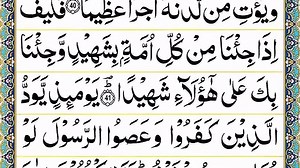 وَيُؤْتِ مِنْ لَّدُنْهُ اَجْرًا عَظِيْمًا ﴿40﴾ فَكَيْفَ
اِذَا جِئْنَا مِنْ كُلِّ اُمَّةٍۭ بِشَهِيْدٍ وَّجِئْنَا
بِكَ عَلٰى هٰٓؤُلَآءِ شَهِيْدًا ﴿41﴾ يَوْمَئِذٍ يَّوَدُّ
الَّذِيْنَ كَفَرُوْا وَعَصَوُا الرَّسُوْلَ لَوْ